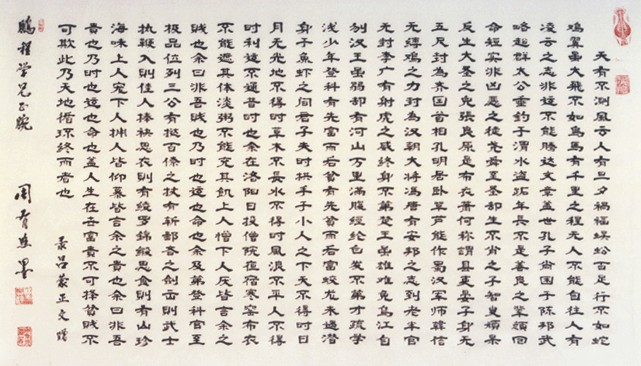 天有不测风云人有旦夕祸福蜈蚣百足行不如蛇
鸡翼虽大飞不如鸟马有千里之程无人不能自往人有
凌云之志非运不能腾达文章盖世孔子尚困于陈邦武
略超群太公垂钓于渭水盗跖年长不是善良之辈颜回
命短实非凶恶之徒尧舜至圣却生不肖之子瞽叟顽呆
反生大圣之儿张良原是布衣萧何称谓县吏晏子身无
五尺封为齐国首相孔明居卧草庐能作蜀汉军师韩信
无缚鸡之力封为汉朝大将冯唐有安邦之志到老半官
无封李广有射虎之威终身不第楚王虽雄难免乌江自
刎汉王虽弱却有河山万里满腹经纶白发不第才疏学
浅少年登科有先富而后贫有先贫而后富蛟龙未遇潜
身于鱼虾之间君子失时拱手于小人之下天不得时日
月无光地不得时草木不长水不得时风浪不平人不得
时利运不通昔时也余在洛阳日投僧院夜宿寒窑布衣
不能遮其体淡粥不能充其饥上人憎下人厌皆言余之
贱也余曰非吾贱也乃时也运也命也余及第登科官至
极品位列三公有挞百僚之杖有斩鄙吝之剑出则武士
执鞭入则佳人捧袂思衣则有绫罗锦缎思食则有山珍
海味上人宠下人拥人皆仰慕皆言余之贵也余曰非吾
贵也乃时也运也命也盖人生在世富贵不可捧贫贱不
可欺此乃天地循环终而者也
录吕蒙正文赠
鹏程学兄正腕
周育墨